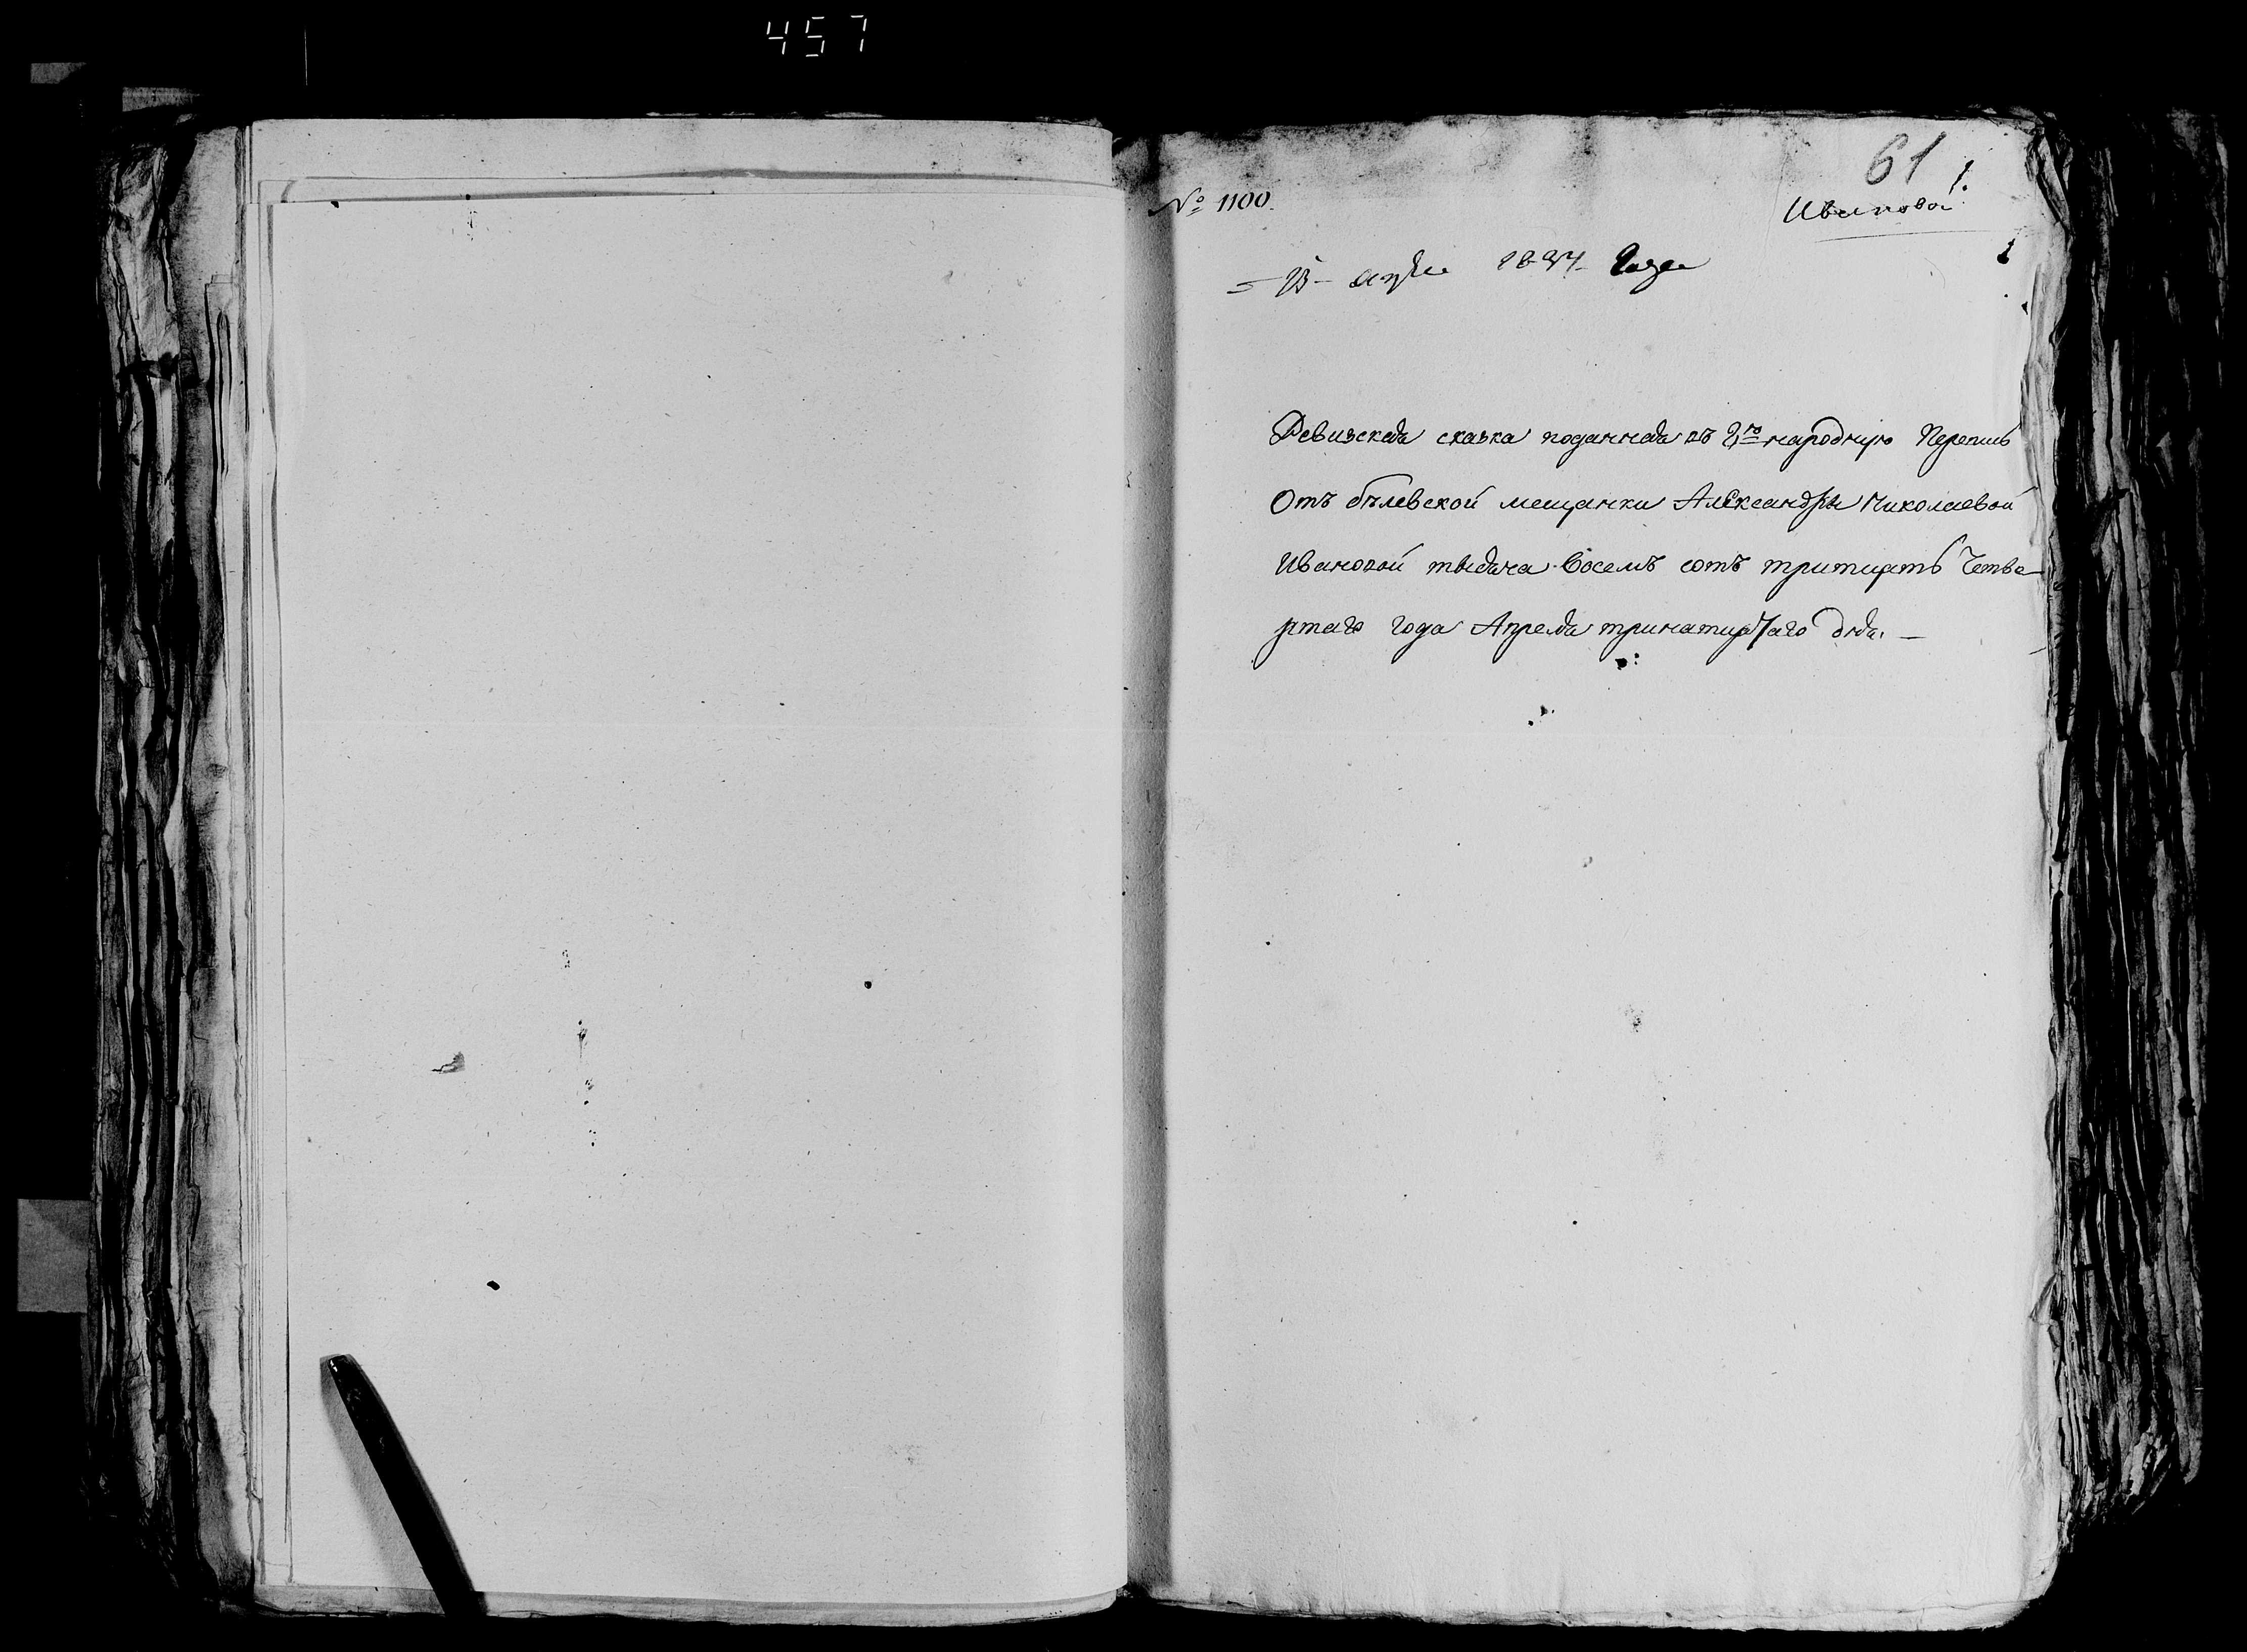 457
61
1.
№ 1100.
Ивановой
1
13 апре 1834 года
Ревизская сказка поданная въ 8ю народную Перепись
Отъ бѣлевской мещанки Александры Николаевой
Ивановой тысяча Восемъ сотъ тритцать Четве
ртаго года Апреля тринатцатаго дня. —